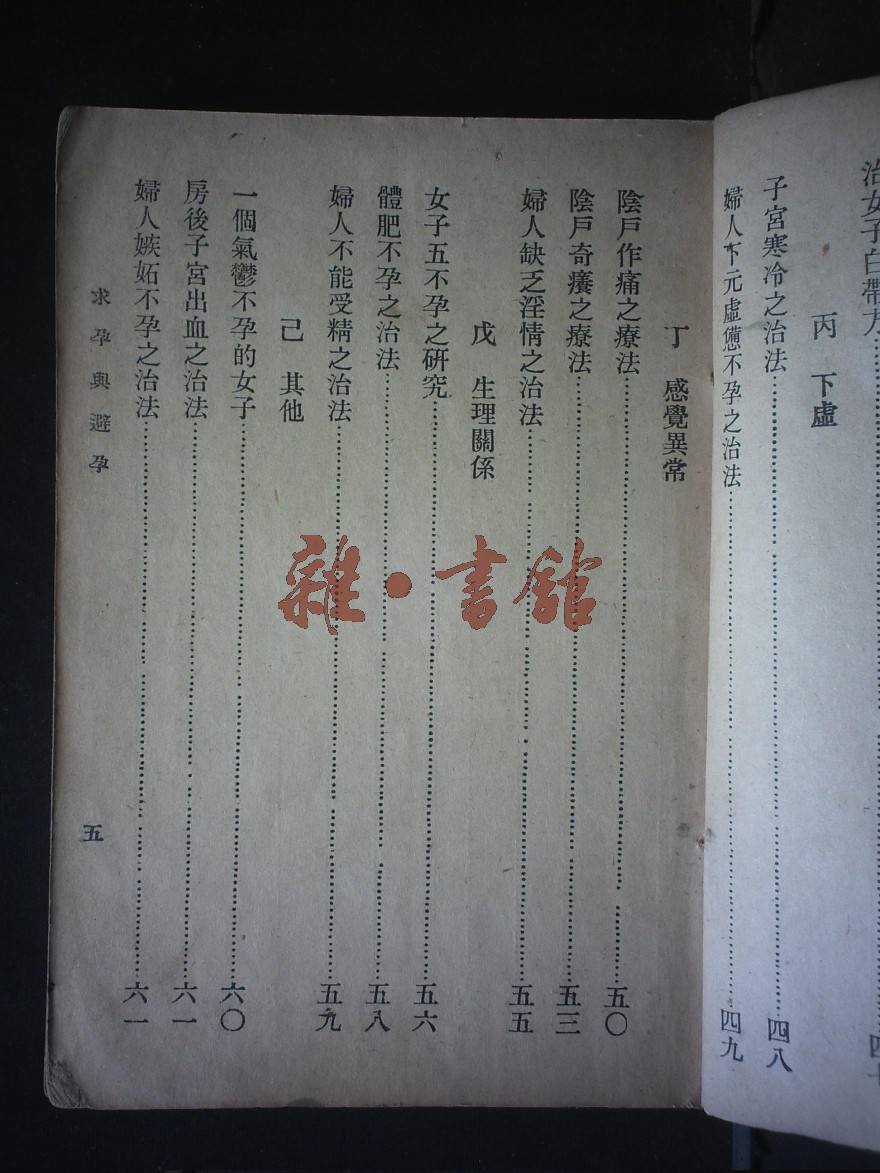 治女子白帶方
丙　下虛
子宮寒冷之治法…………四八
婦人下元虛憊不孕之治法…………四九
丁　感覺異常
陰戶作痛之療法…………五〇
陰戶奇癢之療法…………五三
婦人缺乏淫情之治法…………五五
戊　生理關係
女子五不孕之研究…………五六
體肥不孕之治法…………五八
婦人不能受精之治法…………五九
己　其他
一個氣鬱不孕的女子…………六〇
房後子宮出血之治法…………六一
婦人嫉妬不孕之治法…………六一
求孕與避孕
五
雜·書館